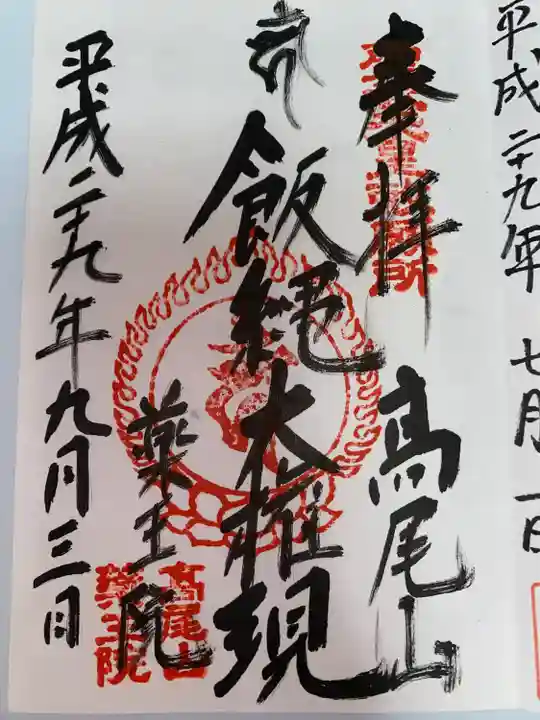 平成二十九年 七月一日
奉拝 高尾山
飯縄大権現
薬王院
高尾山
薬王院
平成二十九年九月三日